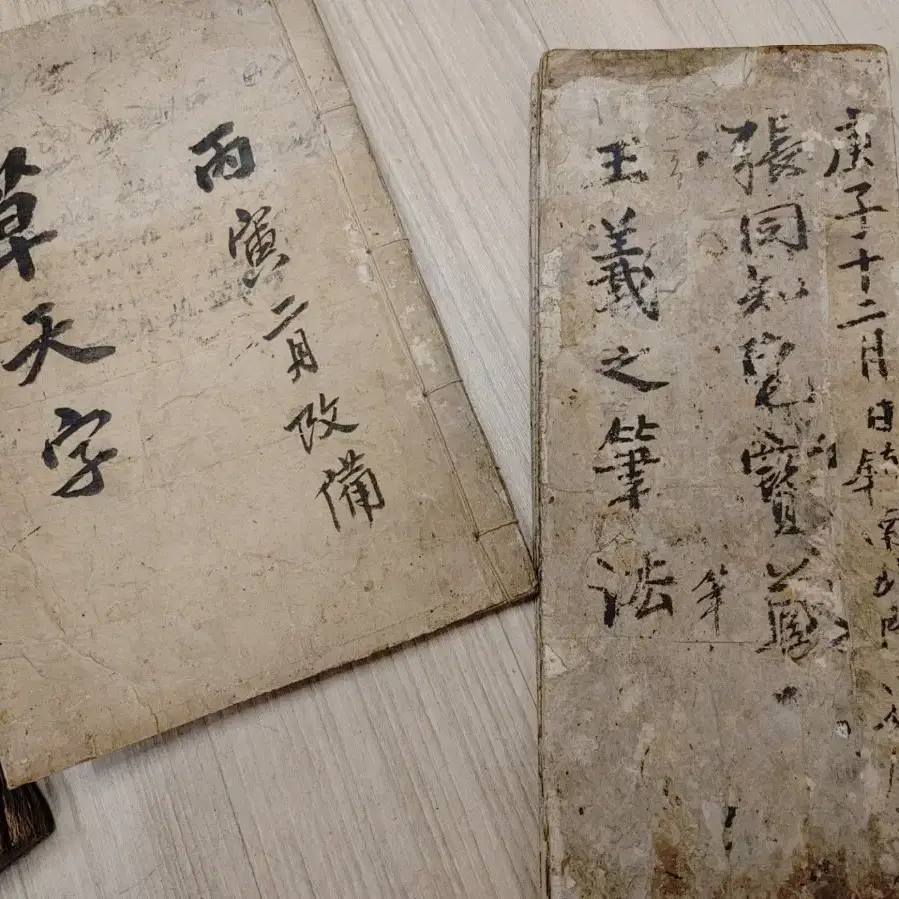 丙寅二月改備
草天字
庚子十二月日
張同知宅寶藏
王羲之筆法